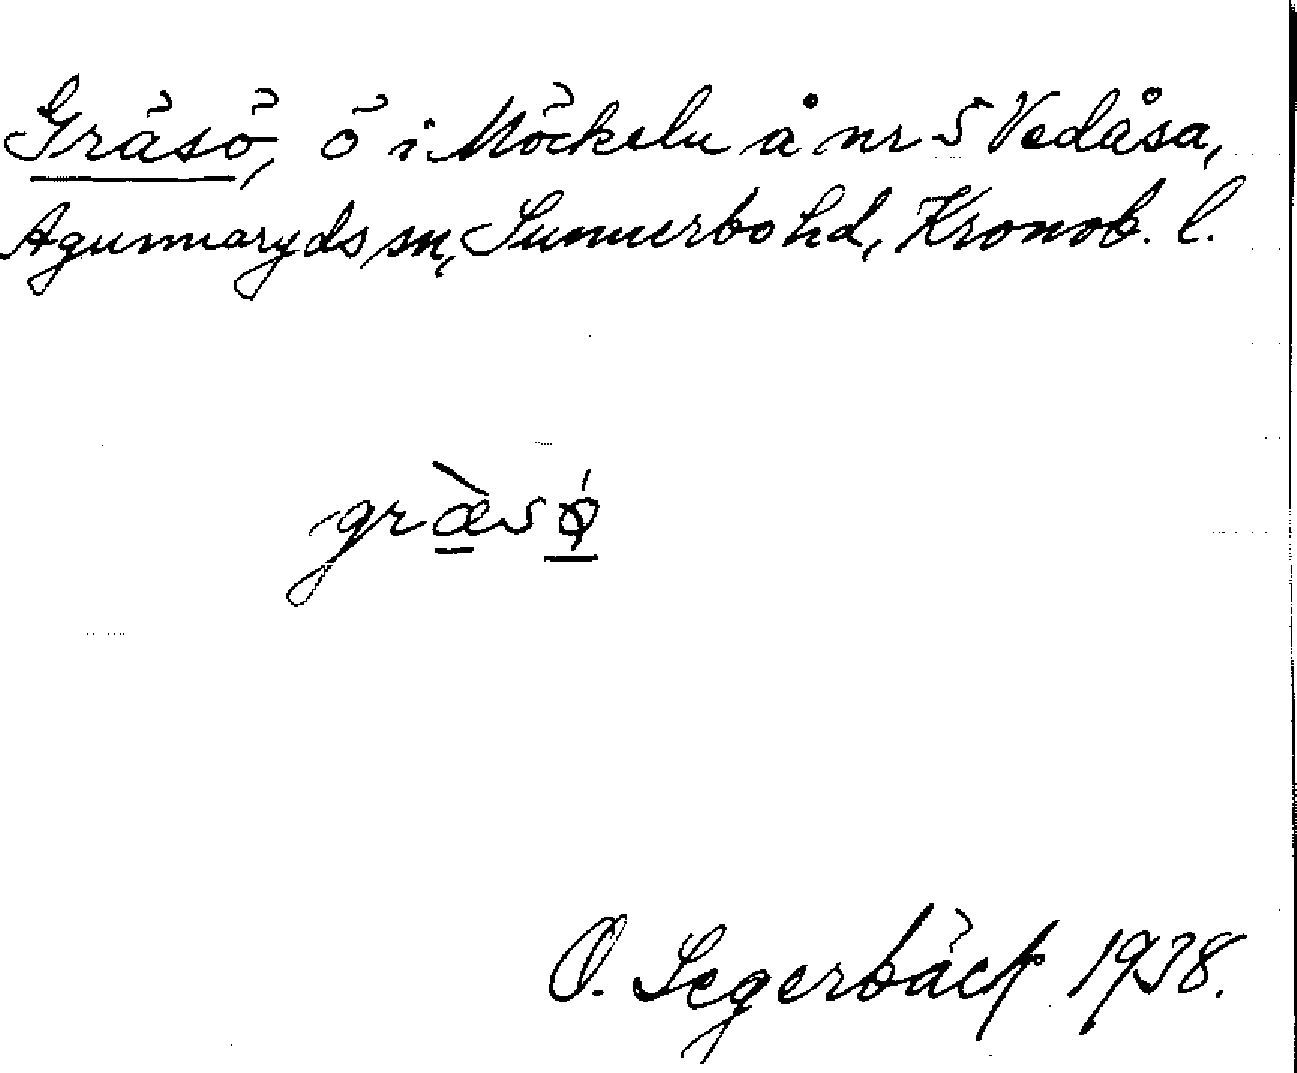 Gräsö, ö i Möckeln å nr 5 Vedåsa,
Agunnaryds sn, Sunnerbo hd, Kronob. l.
græ̀sǿ
O. Segerbäck 1938.